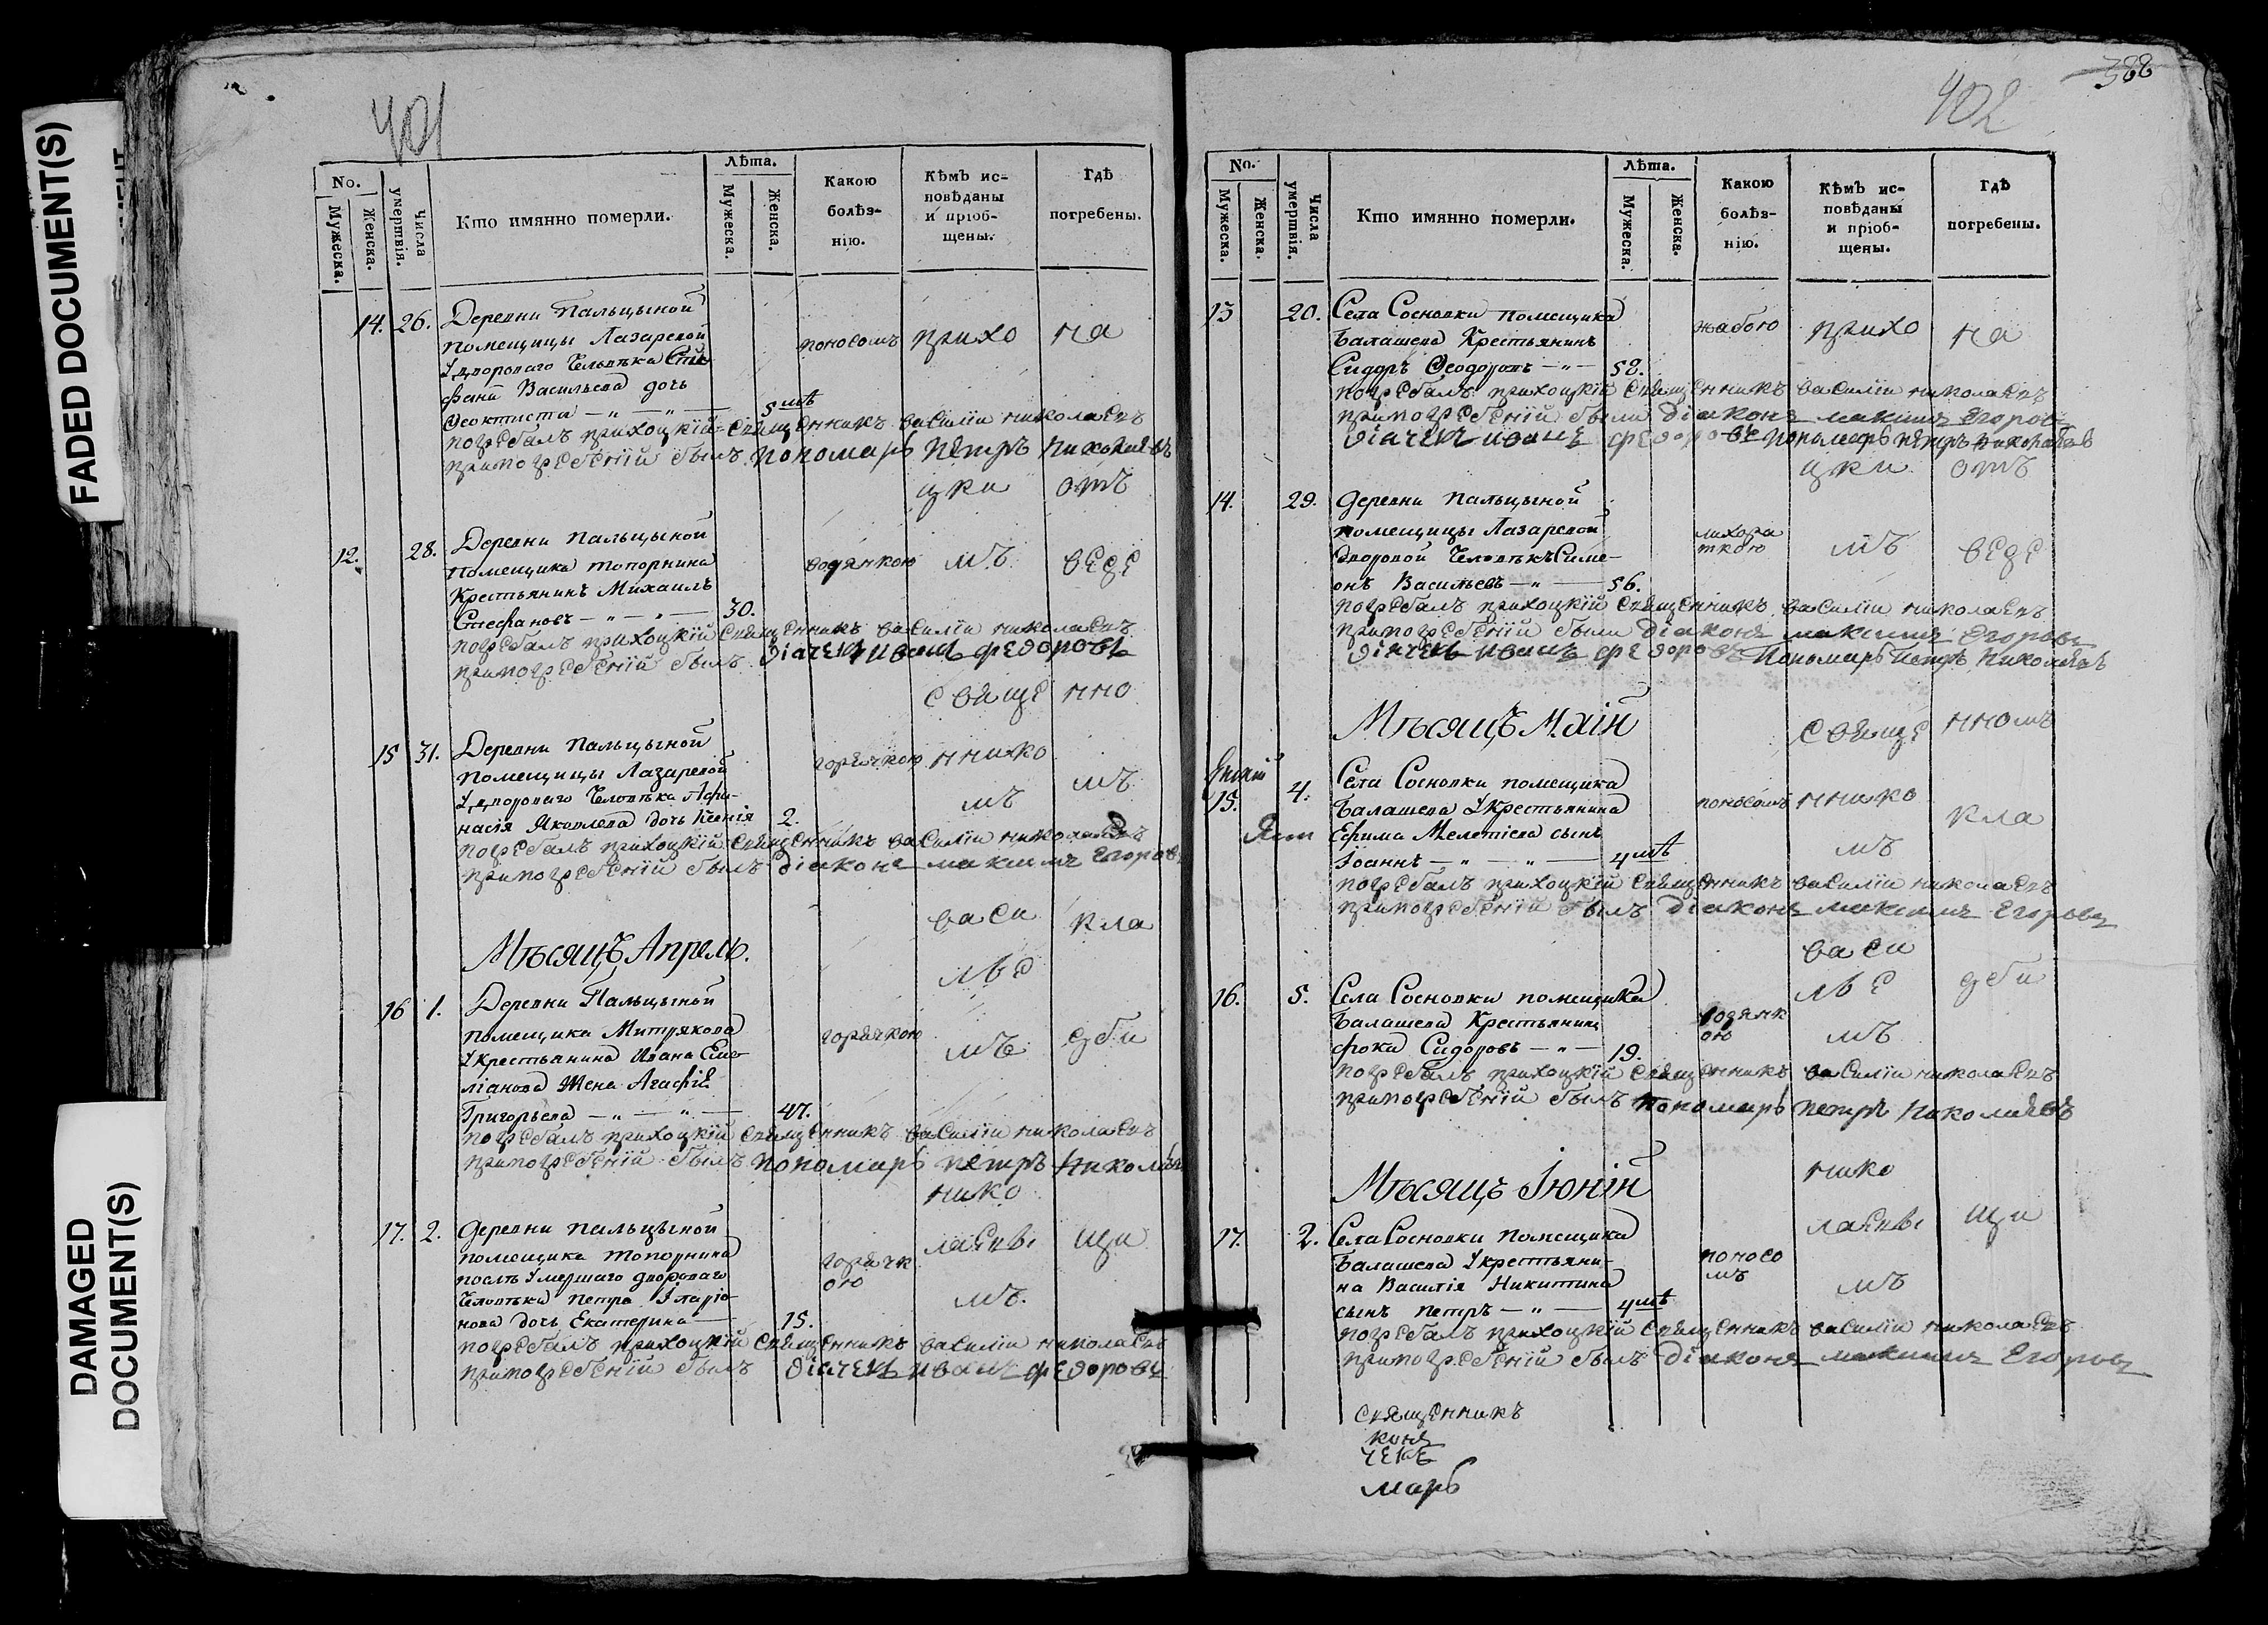 FADED DOCUMENT(S)
DAMAGED
DOCUMENT(S)
401
No.
Мужеска.
Женска.
Числа
умертвія.
Кто имянно померли.
Лѣта.
Мужеска.
Женска.
Какою
болѣз-
нію.
Кѣмъ ис-
повѣданы
и пріоб-
щены.
Гдѣ
погребены.
14. 26. Деревни Пальцыной
помещицы Лазаревой поносомъ прихо на
У двороваго Человѣка Сте-
фана Васильева дочь
Феоктиста — „ — „ — 5 мѣ
погребалъ прихоцкій священникъ василіи николаевъ
припогребеніи былъ пономарь петръ николаевъ
цки отъ
12. 28. Деревни Пальцыной
Помещика Топорнина водянкою мъ веде
Крестьянинъ Михаилъ
Стефановъ — „ — „ — 30.
погребалъ прихоцкій священникъ василіи николаевъ
припогребеніи былъ діачекъ иванъ федоровъ
свяще нно
15 31. Деревни Пальцыной
помещицы Лазаревой горячкою ннико
У двороваго Человѣка Афа- мъ мъ
насія Яковлева дочь Ксенія 2.
погребалъ прихоцкій священникъ василіи николаевъ
припогребеніи былъ діаконъ максимъ Егоровъ
васи кла
Мѣсяцъ Апрель.
лье
16 1. Деревни Пальцыной
помещика Митрякова горячкою мъ дби
У крестьянина Ивана Еме-
ліанова Жена Агафія
Григорьева — „ — „ — 47.
погребалъ прихоцкій священникъ василіи николаевъ
припогребеніи былъ пономарь петръ николаевъ
нико
17. 2. Деревни Пальцыной
помещика Топорнина лаевы щи
послѣ Умершаго двороваго горячк
ою
Человѣка Петра Иларіо- мъ.
нова дочь Екатерина — 15.
погребалъ прихоцкій священникъ василіи николаевъ
припогребеніи былъ діачекъ иванъ федоровъ
402
388
No.
Мужеска.
Женска.
Числа
умертвія.
Кто имянно померли.
Лѣта.
Мужеска.
Женска.
Какою
болѣз-
нію.
Кѣмъ ис-
повѣданы
и пріоб-
щены.
Гдѣ
погребены.
13 20. Села Сосновки помещика
Балашева Крестьянинъ жабою прихо на
Сидоръ Феодоровъ — „ — 58.
погребалъ прихоцкій священникъ василіи николаевъ
припогребеніи были діаконъ максимъ Егоровъ
діачекъ иванъ федоровъ пономарь петръ николаевъ
цки отъ
14. 29. Деревни Пальцыной
помещицы Лазаревой лихора
ткою
дворовой Человѣкъ Симе- мъ веде
онъ Васильевъ — „ — 56.
погребалъ прихоцкій священникъ василіи николаевъ
припогребеніи были діаконъ максимъ Егоровъ
діачекъ иванъ федоровъ Пономарь Петръ Николаевъ
Мѣсяцъ Маій
свяще нномъ
4. Села Сосновки помещика
15. Балашева У крестьянина поносомъ ннико
Ефима Мелетіева сынъ кла
Іоаннъ — „ — „ — 4 мѣ мъ
погребалъ прихоцкій священникъ василіи николаевъ
припогребеніи былъ діаконъ максимъ Егоровъ
васи
16. 5. Села Сосновки помещика лье дби
Балашева Крестьянинъ водянк
ою
фока Сидоровъ — „ — 19. мъ
погребалъ прихоцкій священникъ василіи николаевъ
припогребеніи былъ пономарь петръ николаевъ
Мѣсяцъ Іюній
нико
17. 2. Села Сосновки Помещика лаевы щи
Балашева У крестьяни- поносо
мъ
на Василія Никитина мъ
сынъ Петръ — „ — 4 мѣ
погребалъ прихоцкій священникъ василіи николаевъ
припогребеніи былъ діаконъ максимъ Егоровъ
священникъ
конъ
чекъ
марь